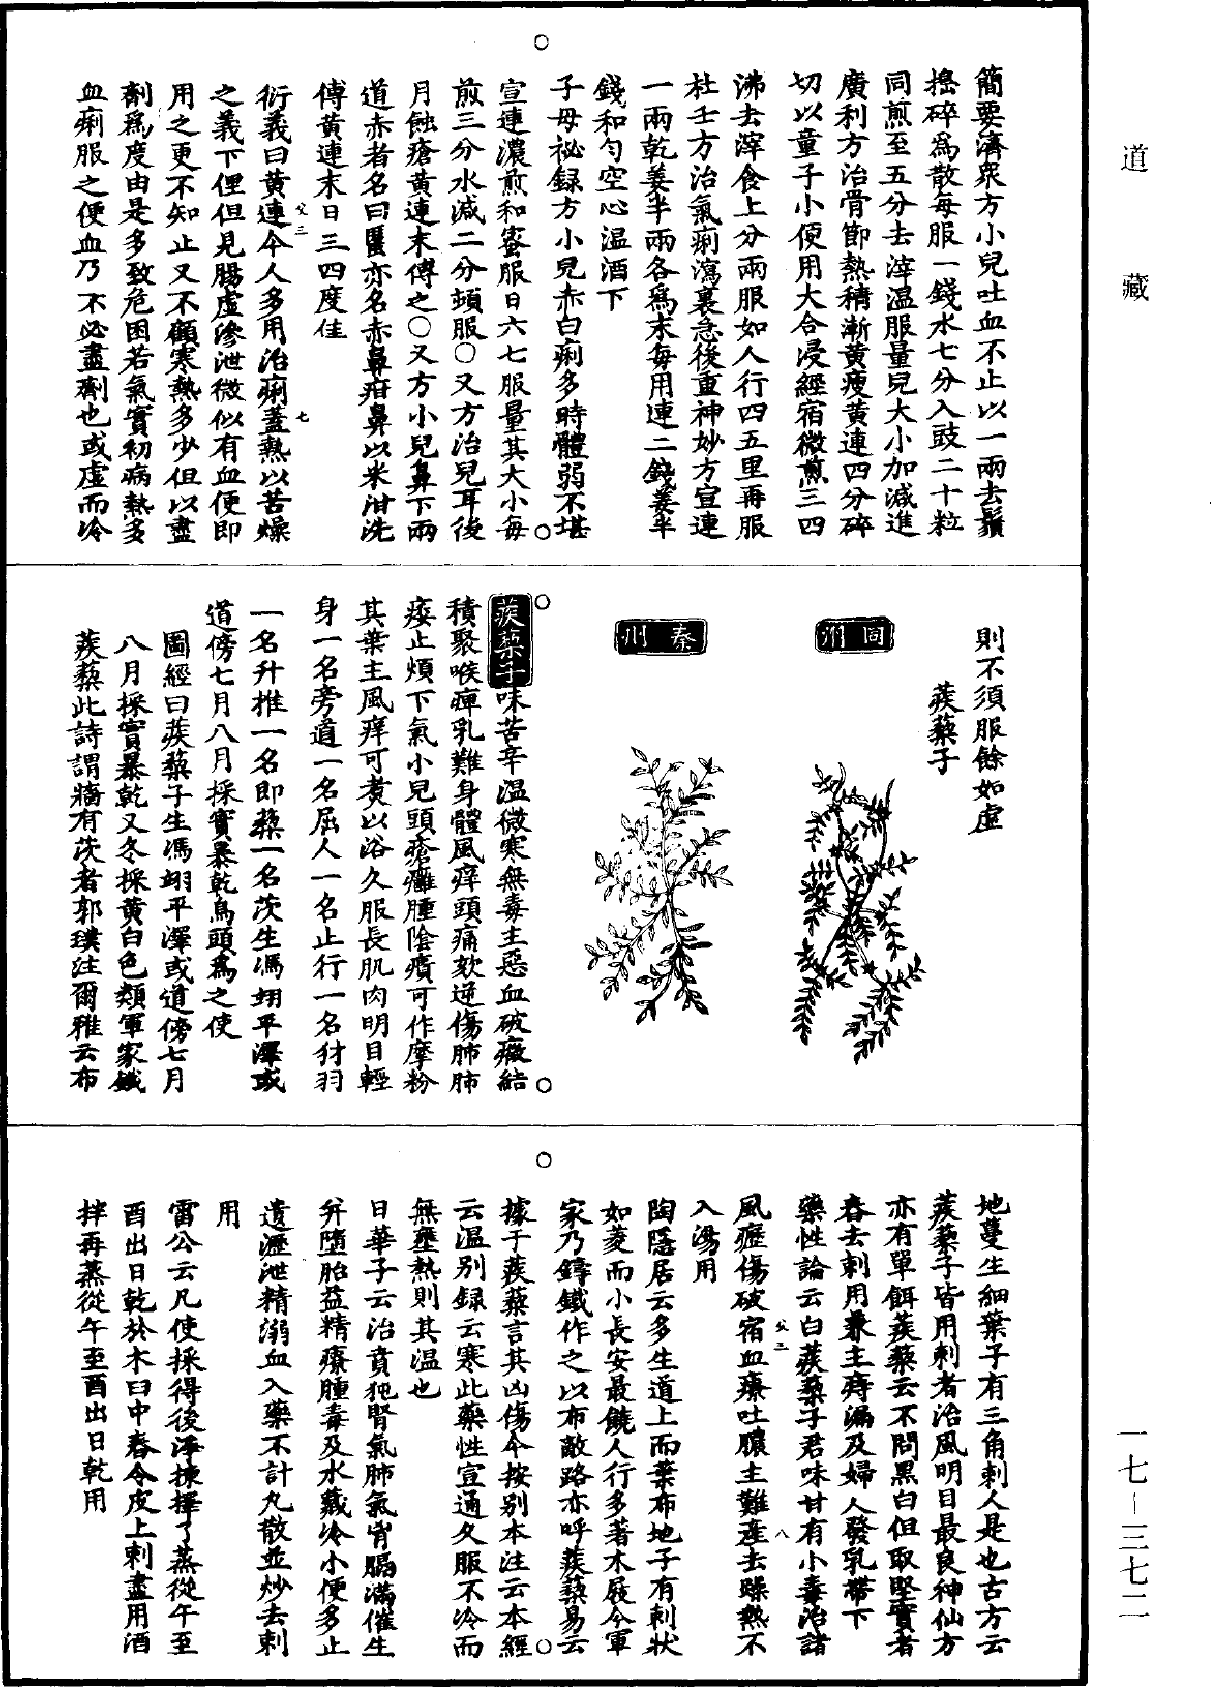 道藏
簡要濟衆方小兒吐血不止以一兩去鬚
搗碎爲散每服一錢水七分入豉二十粒
同煎至五分去滓温服量兒大小加減進
廣利方治骨節熱積漸黄瘦黄連四分碎
切以童子小便用大合浸經宿微煎三四
沸去滓食上分兩服如人行四五里再服
杜壬方治氣痢瀉裏急後重神妙方宣連
一兩乾姜半兩各爲末每用連二錢姜半
錢和勻空心温酒下
子母祕録方小兒赤白痢多時體弱不堪
宣連濃煎和蜜服日六七服量其大小每
煎三分水減二分頓服○又方治兒耳後
月蝕瘡黄連末傅之○又方小兒鼻下兩
道赤者名曰䘌亦名赤鼻疳鼻以米泔洗
傅黄連末日三四度佳
衍義曰黄連今人多用治痢蓋熱以苦燥
之義下俚但見腸虛滲泄微似有血便即
用之更不知止又不顧寒熱多少但以盡
劑爲度由是多致危困若氣實初病熱多
血痢服之便血乃不必盡劑也或虛而冷
父三
七
則不須服餘如虛
蒺蔾子
同州
秦州
蒺蔾子味苦辛温微寒無毒主惡血破癥結
積聚喉痺乳難身體風痒頭痛欬逆傷肺肺
痿止煩下氣小兒頭瘡癰腫陰㿉可作摩粉
其葉主風痒可煑以浴久服長肌肉明目輕
身一名旁道一名屈人一名止行一名犲羽
一名升推一名即蔾一名茨生馮翊平澤或
道傍七月八月採實暴乾烏頭爲之使
圖經曰蒺蔾子生馮翊平澤或道傍七月
八月採實暴乾又冬採黄白色類軍家鐵
蒺蔾此詩謂牆有茨者郭璞注爾雅云布
地蔓生細葉子有三角刺人是也古方云
蒺蔾子皆用刺者治風明目最良神仙方
亦有單餌蒺蔾云不問黑白但取堅實者
舂去刺用兼主痔漏及婦人發乳帶下
藥性論云白蒺蔾子君味甘有小毒治諸
風癧傷破宿血療吐膿主難産去躁熱不
入湯用
陶隱居云多生道上而葉布地子有刺狀
如菱而小長安最饒人行多著木屐今軍
家乃鑄鐵作之以布敵路亦呼蒺蔾易云
據于蒺蔾言其凶傷今按别本注云本經
云温别録云寒此藥性宣通久服不冷而
無壅熱則其温也
日華子云治賁㹠腎氣肺氣胷膈滿催生
并墮胎益精療腫毒及水藏冷小便多止
遺瀝泄精溺血入藥不計丸散並炒去刺
用
雷公云凡使採得後淨揀擇了蒸從午至
酉出日乾於木臼中舂令皮上刺盡用酒
拌再蒸從午至酉出日乾用
父三
八
一七－三七二